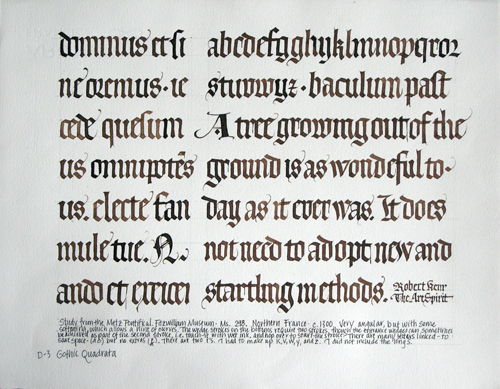 dominus et si
ne oremus · ie
cede quesum
us omnipotēs
us. electe fan
mule tue. N.
ando et
abcdefgghijklmnopqror2
stuvwyz · baculum past
A tree growing out of the
ground is as wondeful to·
day as it ever was. It does
not need to adopt new and
startling methods.
Robert Henri
The Art Spirit
Study from the Metz Pontifical. Fitzwilliam Museum · Ms. 298. Northern France · c.1300. Very angular, but with some
softening, which allows a hint of curves. The wedge strokes on the bottoms require two strokes, though the entrance wedges can sometimes
be achieved as part of the second stroke, i.e. touch-it with wet ink, and hop over to start the stroke. There are many letters linked - to
save space - but no extras There are two r's. I had to make up k, v, w, y, and z. I did not include the long s.
D-3 Gothic Quadrata